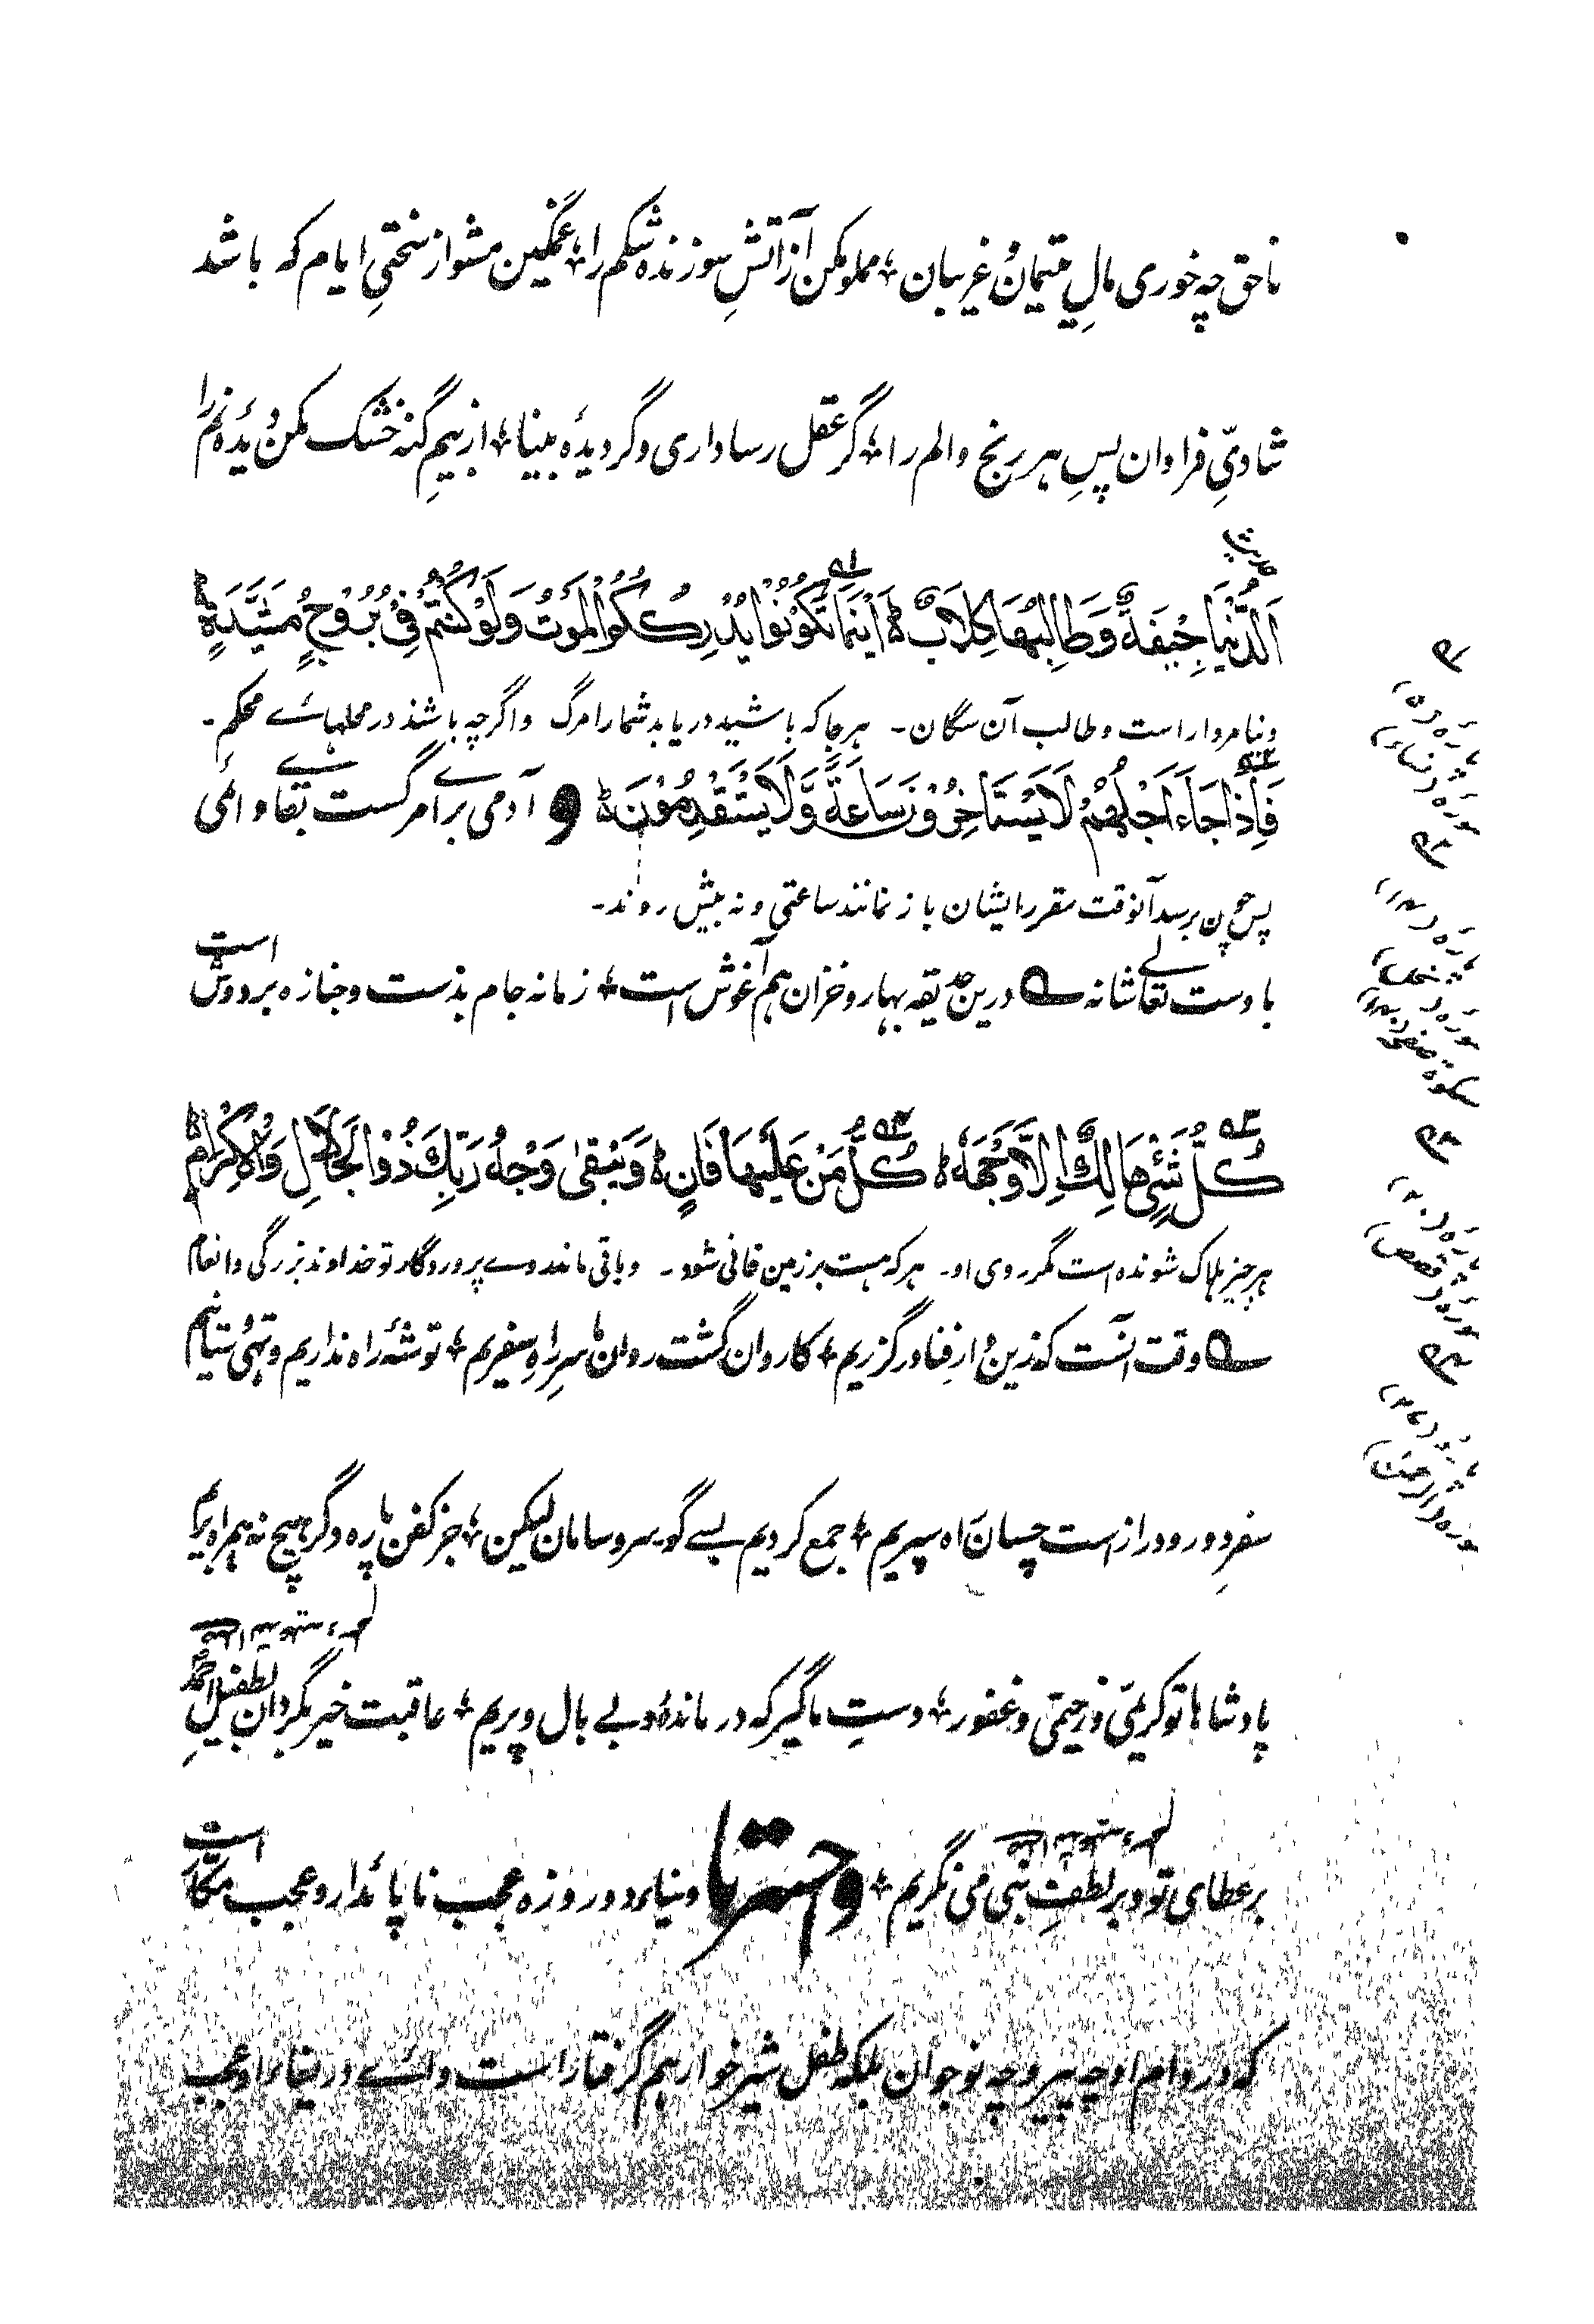 ناحق چه خوری مالِ یتیمان و غریبان ؛ مملو مکن از آتشِ سوزنده شکم را ؛ غمگین مشو از سختیِ ایام که باشد
شادیِ فراوان پسِ هر رنج و الم را ؛ گر عقل رسا داری و گر دیدۂ بینا ؛ از بیمِ گنه خشک مکن دیدۂ نم را
حدیث
اَلدُّنْیَا جِیْفَةٌ وَطَالِبُهَا کِلَابٌ ط اَیْنَمَا تَکُوْنُوْا یُدْرِکْکُّمُ الْمَوْتُ وَلَوْ کُنْتُمْ فِیْ بُرُوْجٍ مُّشَیَّدَةٍ ط
دنیا مردار است و طالب آن سگان۔ هر جا که باشید دریابد شما را مرگ و اگرچه باشند در محلهائے محکم۔
فَاِذَا جَاءَ اَجَلُهُمْ لَا یَسْتَاْخِرُوْنَ سَاعَةً وَّلَا یَسْتَقْدِمُوْنَ ط و آدمی برائے مرگست بقائے دائمی
پس چون برسد آنوقت مقرر ایشان باز نمانند ساعتی و نه پیش روند۔
با دوست تعالے شانه درین حدیقه بهار و خزان هم آغوش است ؛ زمانه جام بدست و جنازه بر دوش است
کُلُّ شَیْءٍ هَالِكٌ اِلَّا وَجْهَهٗ ط کُلُّ مَنْ عَلَیْهَا فَانٍ ط وَیَبْقٰی وَجْهُ رَبِّكَ ذُو الْجَلَالِ وَالْاِکْرَامِ ط
هر چیز هلاک شونده است مگر روی او۔ هر که هست بر زمین فانی شود۔ و باقی ماند روے پروردگار تو خداوند بزرگی و انعام
وقت آنست کزین دار فنا درگزریم ؛ کاروان گشت روان ما سرِ راهِ سفریم ؛ توشۂ راه نداریم و تهی دستانیم
سفرِ دور و دراز است چسان راه سپریم ؛ جمع کردیم بسے گو سر و سامان لیکن ؛ جز کفن پاره دگر هیچ نه همراه بریم
پادشاها تو کریمی و رحیمی و غفور ؛ دستِ ما گیر که درمانده و بے بال و پریم ؛ عاقبت خیر بگردان بطفیلِ احمد
بر عطای تو و بر لطفِ نبی می نگریم ؛ وا حسرتا دنیاء دو روزه عجب ناپائدار و عجب مکّار است
که در دام او چه پیر و چه نوجوان بلکه طفل شیرخوار هم گرفتار است وائے دریغا و عجب